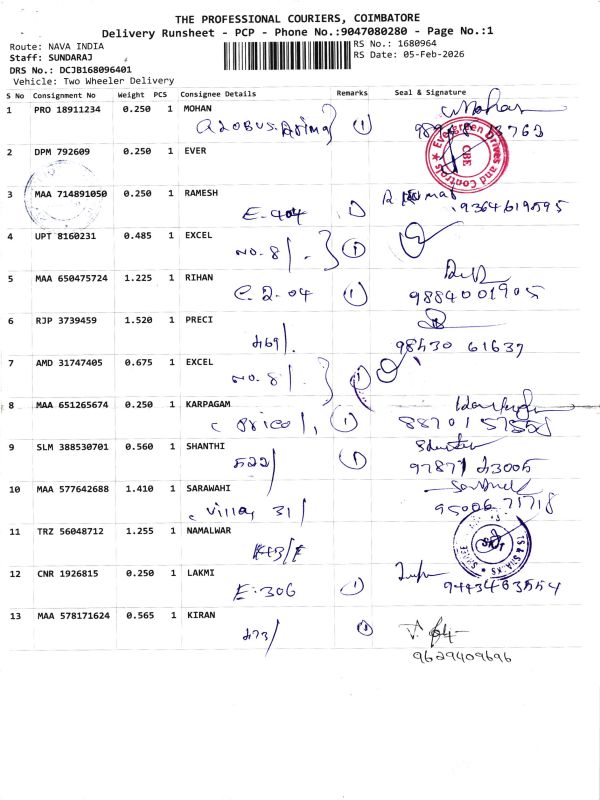 THE PROFESSIONAL COURIERS, COIMBATORE
Delivery Runsheet - PCP - Phone No.:9047080280 - Page No.:1
Route: NAVA INDIA
RS No.: 1680964
Staff: SUNDARAJ
RS Date: 05-Feb-2026
DRS No.: DCJB168096401
Vehicle: Two Wheeler Delivery
S No Consignment No Weight PCS Consignee Details Remarks Seal & Signature
1 PRO 18911234 0.250 1 MOHAN
Mohan
Evergreen Drives and Controls
CBE
2 DPM 792609 0.250 1 EVER
3 MAA 714891050 0.250 1 RAMESH
E-404 1
9364619595
4 UPT 8160231 0.485 1 EXCEL
NO. 81 1
5 MAA 650475724 1.225 1 RIHAN
C. 2-04 1
9884001905
6 RJP 3739459 1.520 1 PRECI
98430 61637
7 AMD 31747405 0.675 1 EXCEL
NO. 81 1
8 MAA 651265674 0.250 1 KARPAGAM
Pricol, 1
9 SLM 388530701 0.560 1 SHANTHI
522/ 1
97877 43005
10 MAA 577642688 1.410 1 SARAWAHI
Villa, 31/
95006 71718
11 TRZ 56048712 1.255 1 NAMALWAR
12 CNR 1926815 0.250 1 LAKMI
E-306 1
9443463554
13 MAA 578171624 0.565 1 KIRAN
473/
9629409696